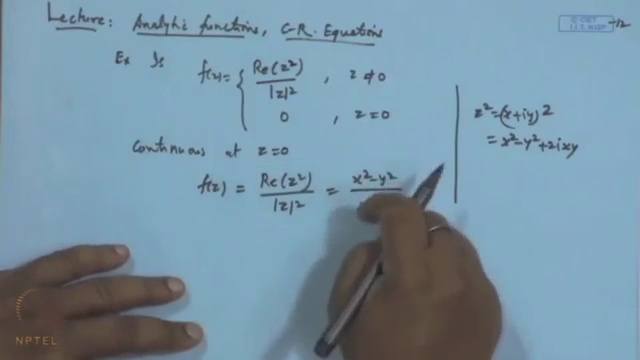 Lecture: Analytic functions, C-R. Equations
Ex Is f(z) = { Re(z²) / |z|² , z ≠ 0
0 , z = 0
Continuous at z=0
f(z) = Re(z²) / |z|² = x²-y²
z² = (x+iy)2
= x²-y²+2ixy
NPTEL